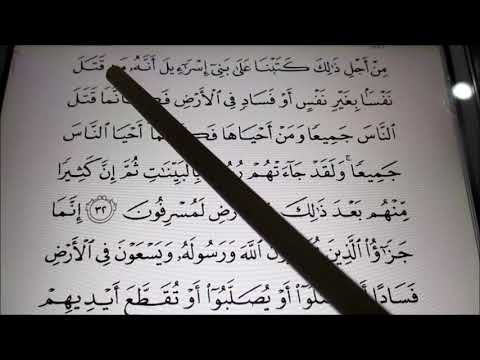 مِنْ أَجْلِ ذَٰلِكَ كَتَبْنَا عَلَىٰ بَنِىٓ إِسْرَٰٓءِيلَ أَنَّهُۥ مَن قَتَلَ
نَفْسًۢا بِغَيْرِ نَفْسٍ أَوْ فَسَادٍ فِى ٱلْأَرْضِ قَتَلَ
ٱلنَّاسَ جَمِيعًا وَمَنْ أَحْيَاهَا أَحْيَا ٱلنَّاسَ
جَمِيعًا ۚ وَلَقَدْ جَآءَتْهُمْ بِٱلْبَيِّنَٰتِ ثُمَّ إِنَّ كَثِيرًا
مِّنْهُم بَعْدَ ذَٰلِكَ لَمُسْرِفُونَ ٣٢ إِنَّمَا
جَزَٰٓؤُا۟ ٱلَّذِينَ ٱللَّهَ وَرَسُولَهُۥ وَيَسْعَوْنَ فِى ٱلْأَرْضِ
فَسَادًا أَوْ يُصَلَّبُوٓا۟ أَوْ تُقَطَّعَ أَيْدِيهِمْ